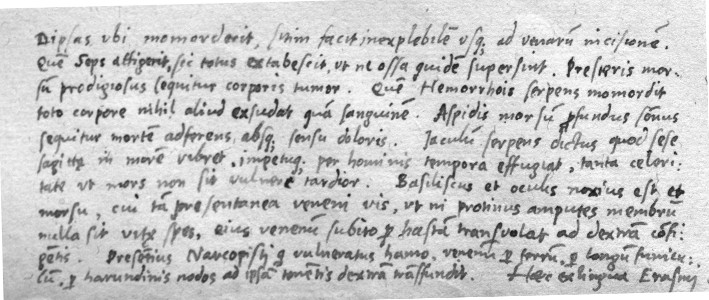 Dipsas ubi momorderit, sitim facit inexplebilē usq; ad venarū incisionē.
Quē Seps attigerit, sic totus extabescit, ut ne ossa quidē supersint. Presteris mor-
sū prodigiosus sequitur corporis tumor. Quē Hemorrhois serpens momordit
toto corpore nihil aliud exsudat quā sanguinē. Aspidis morsū pfundus sonus
sequitur mortē adferens absq; sensu doloris. Iaculū serpens dictus quod sese
sagittę in morē vibret, impetuq; per hominis tempora effugiat, tanta celeri:
tate ut mors non sit vulnere tardior. Basiliscus et oculis noxius est et
morsu, cui tā presentanea veneni vis, ut ni protinus amputes membrū
nulla sit vitę spes, eius venenū subito p hastā transvolat ad dextrā
gētis. Narcopisti vulneratus hamo, venenū p ferrū, p longū funicu:
lū, p harundinis nodos ad ipsā tenētis dextrā trāsfundit. Hæc ex lingua Erasmi